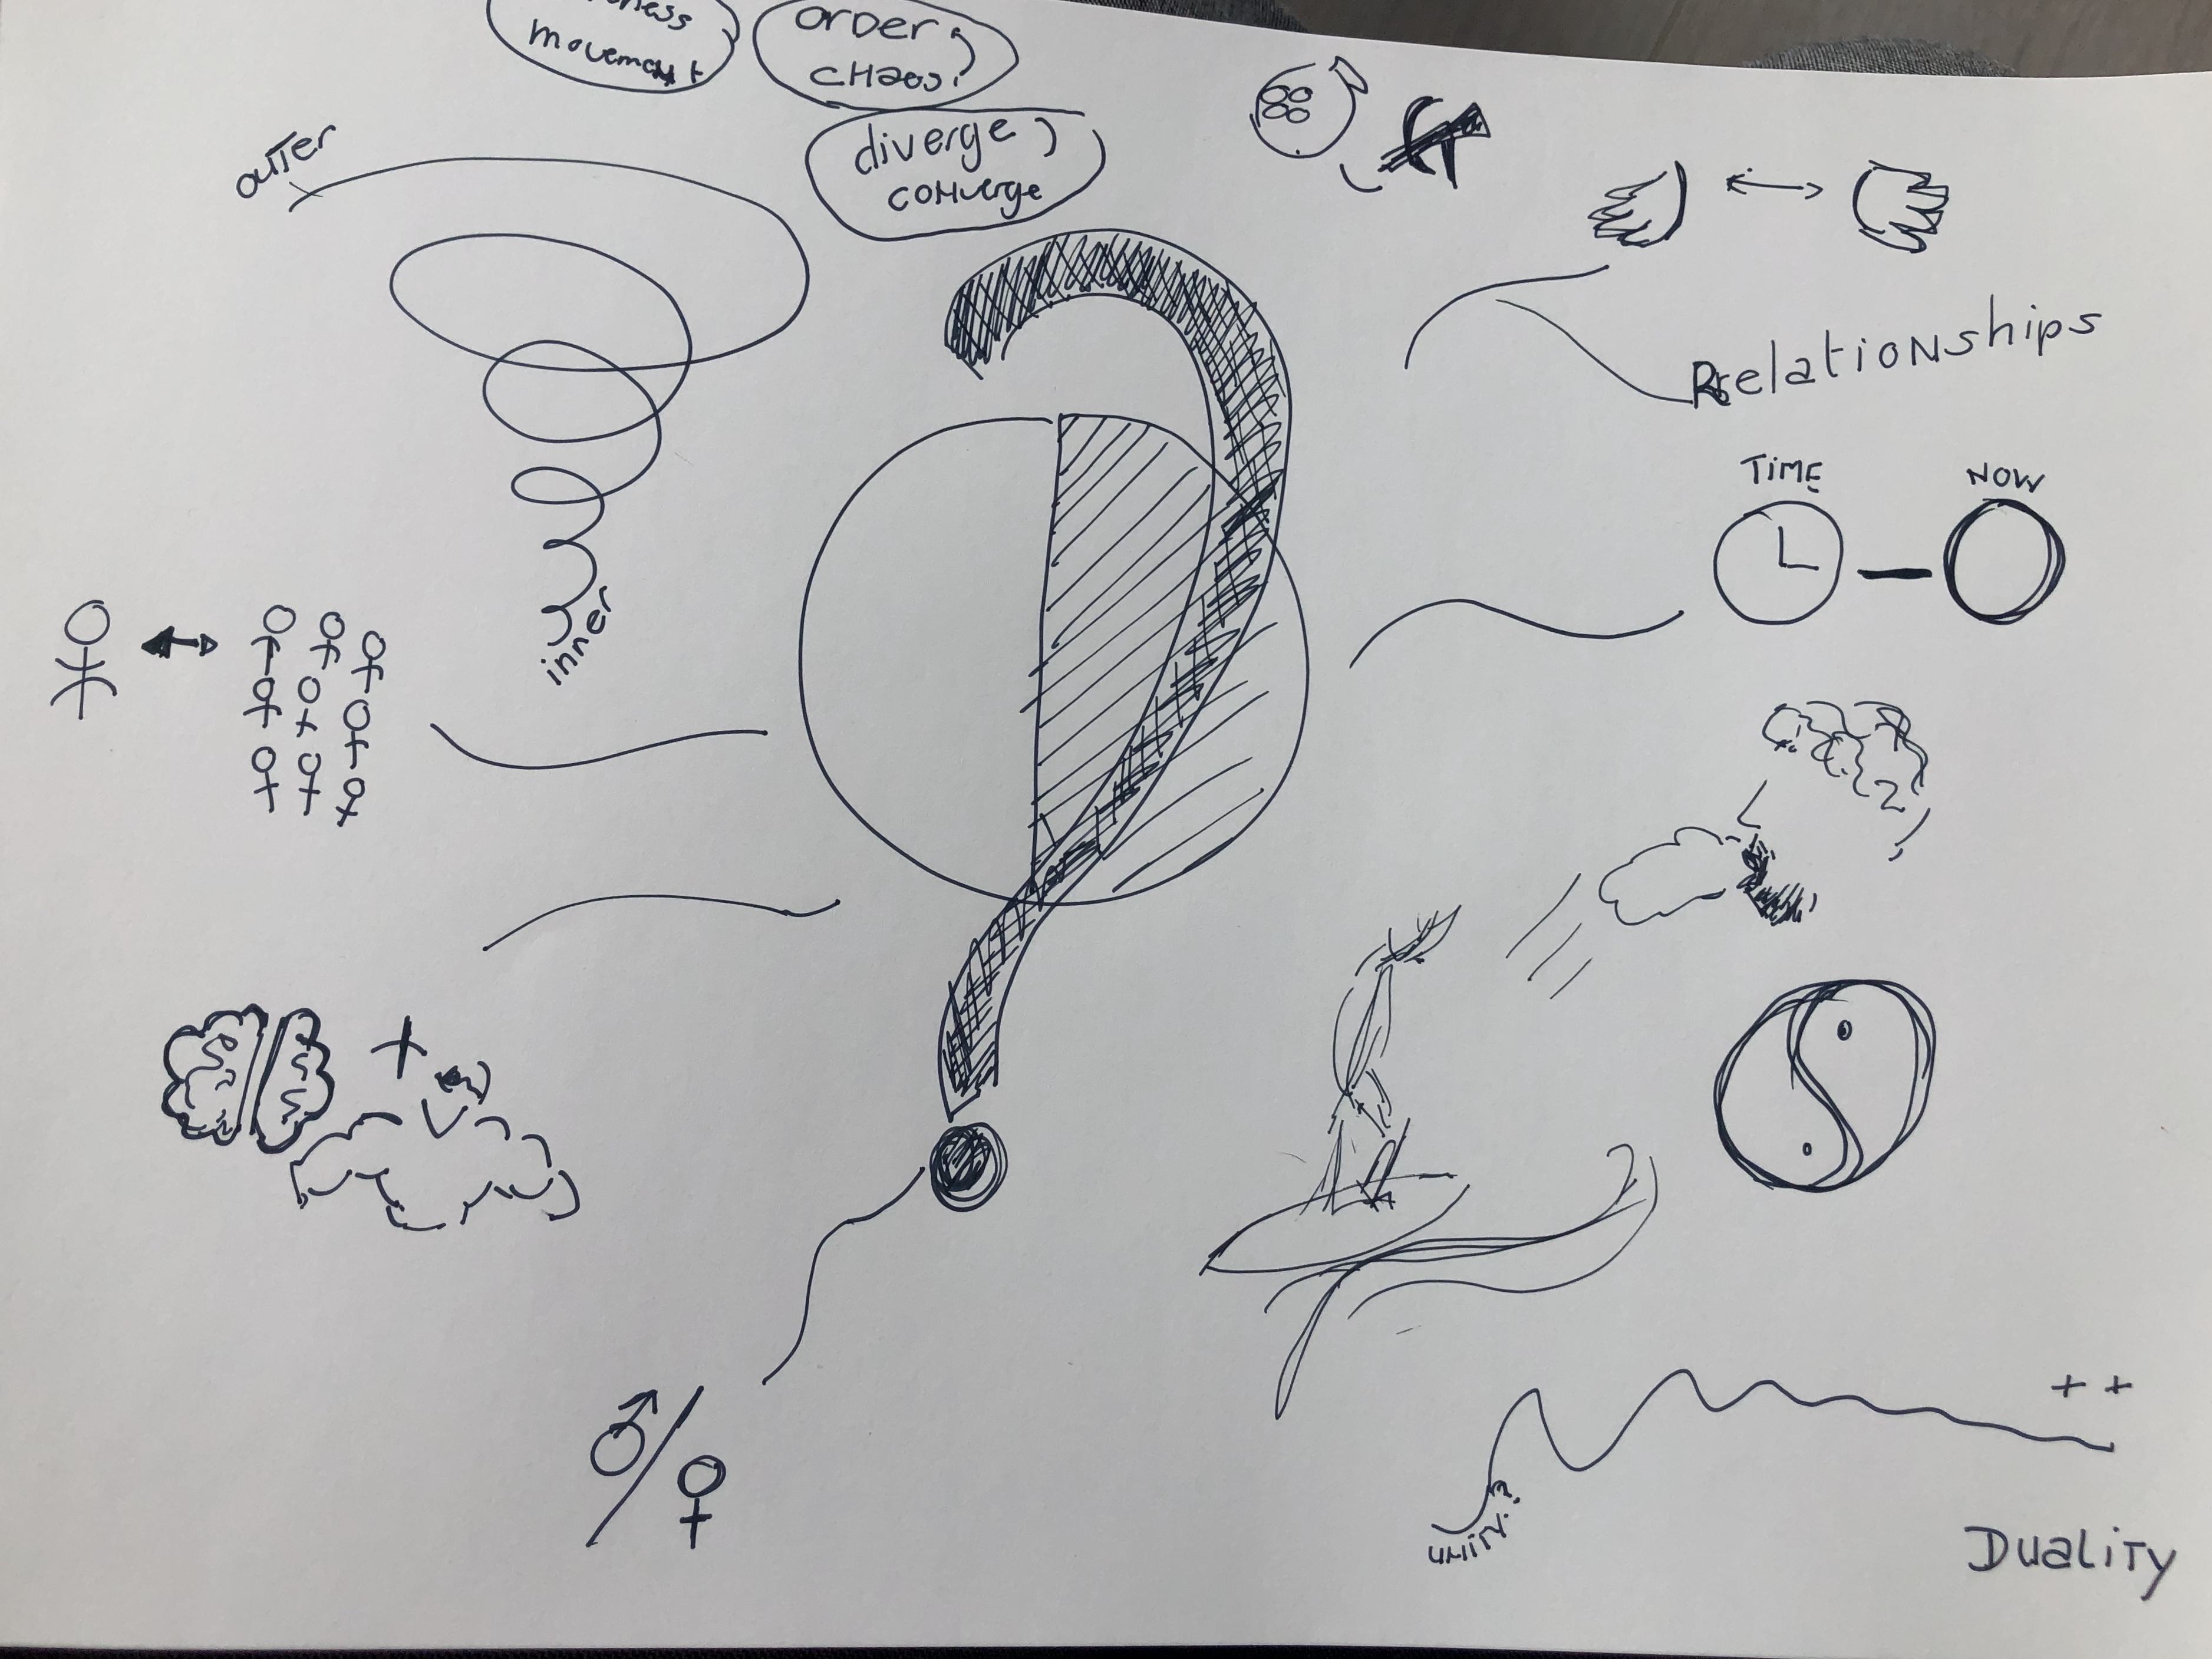 movement
ORDER
CHaos
diverge
converge
outer
inner
Relationships
TIME
NOW
unity?
Duality